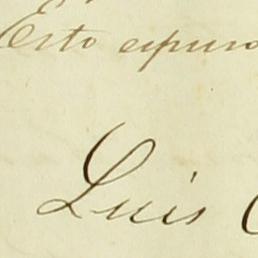 Esto espuso
Luis